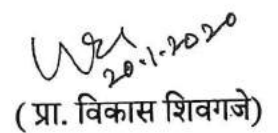 20.1.2020
( प्रा. विकास शिवगजे)